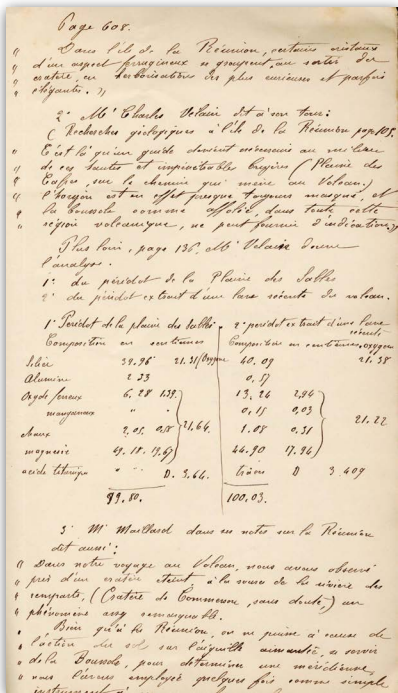 Page 608.
" Dans l'île de la Réunion, certains cristaux
" d'un aspect ferrugineux se groupent, au sortir du
" cratère, en arborisations des plus curieuses et parfois
" élégantes. "
2° Mr Charles Velain dit à son tour:
( Recherches géologiques à l'île de la Réunion page 108.
" C'est là qu'un guide devient nécessaire au milieu
" de ces hautes et impénétrables bruyères ( Plaine des
" Cafres, sur le chemin qui mène au Volcan.)
" l'horizon est en effet presque toujours masqué, et
" la boussole comme affolée, dans toute cette
" région volcanique, ne peut fournir d'indications."
Plus loin, page 136, Mr Velain donne
l'analyse.
1° du péridot de la Plaine des Sables
2° du péridot extrait d'une lave récente du volcan.
1° Peridot de la plaine des Sables. 2° peridot extrait d'une lave récente
Composition en centièmes Composition en centièmes, oxygène
Silice 39.96 21.31 Oxygène 40.09 21.38
Alumine 2.23 0.57
Oxyde ferreux 6.28 1.39 13.24 2,94
manganeux " " 0,15 0,03
21.64. 21.22
Chaux 2,05 0,58 1.08 0,31
magnésie 49.18 19,67 44.90 17.94
acide titanique " " D. 3.64. trâces D 3.409
99.80. 100.03.
3° Mr Maillard dans ses notes sur la Réunion
dit aussi:
" Dans notre voyage au Volcan, nous avons observé
" près d'un cratère éteint, à la source de la rivière des
" remparts, ( Cratère de Commerson, sans doute,) un
" phénomène assez remarquable.
" Bien qu'à la Réunion, on ne puisse à cause de
" l'action du sol sur l'aiguille aimantée, se servir
" de la Boussole, pour déterminer une méridienne,
" nous l'avons employé quelques fois, comme simple
" instrument